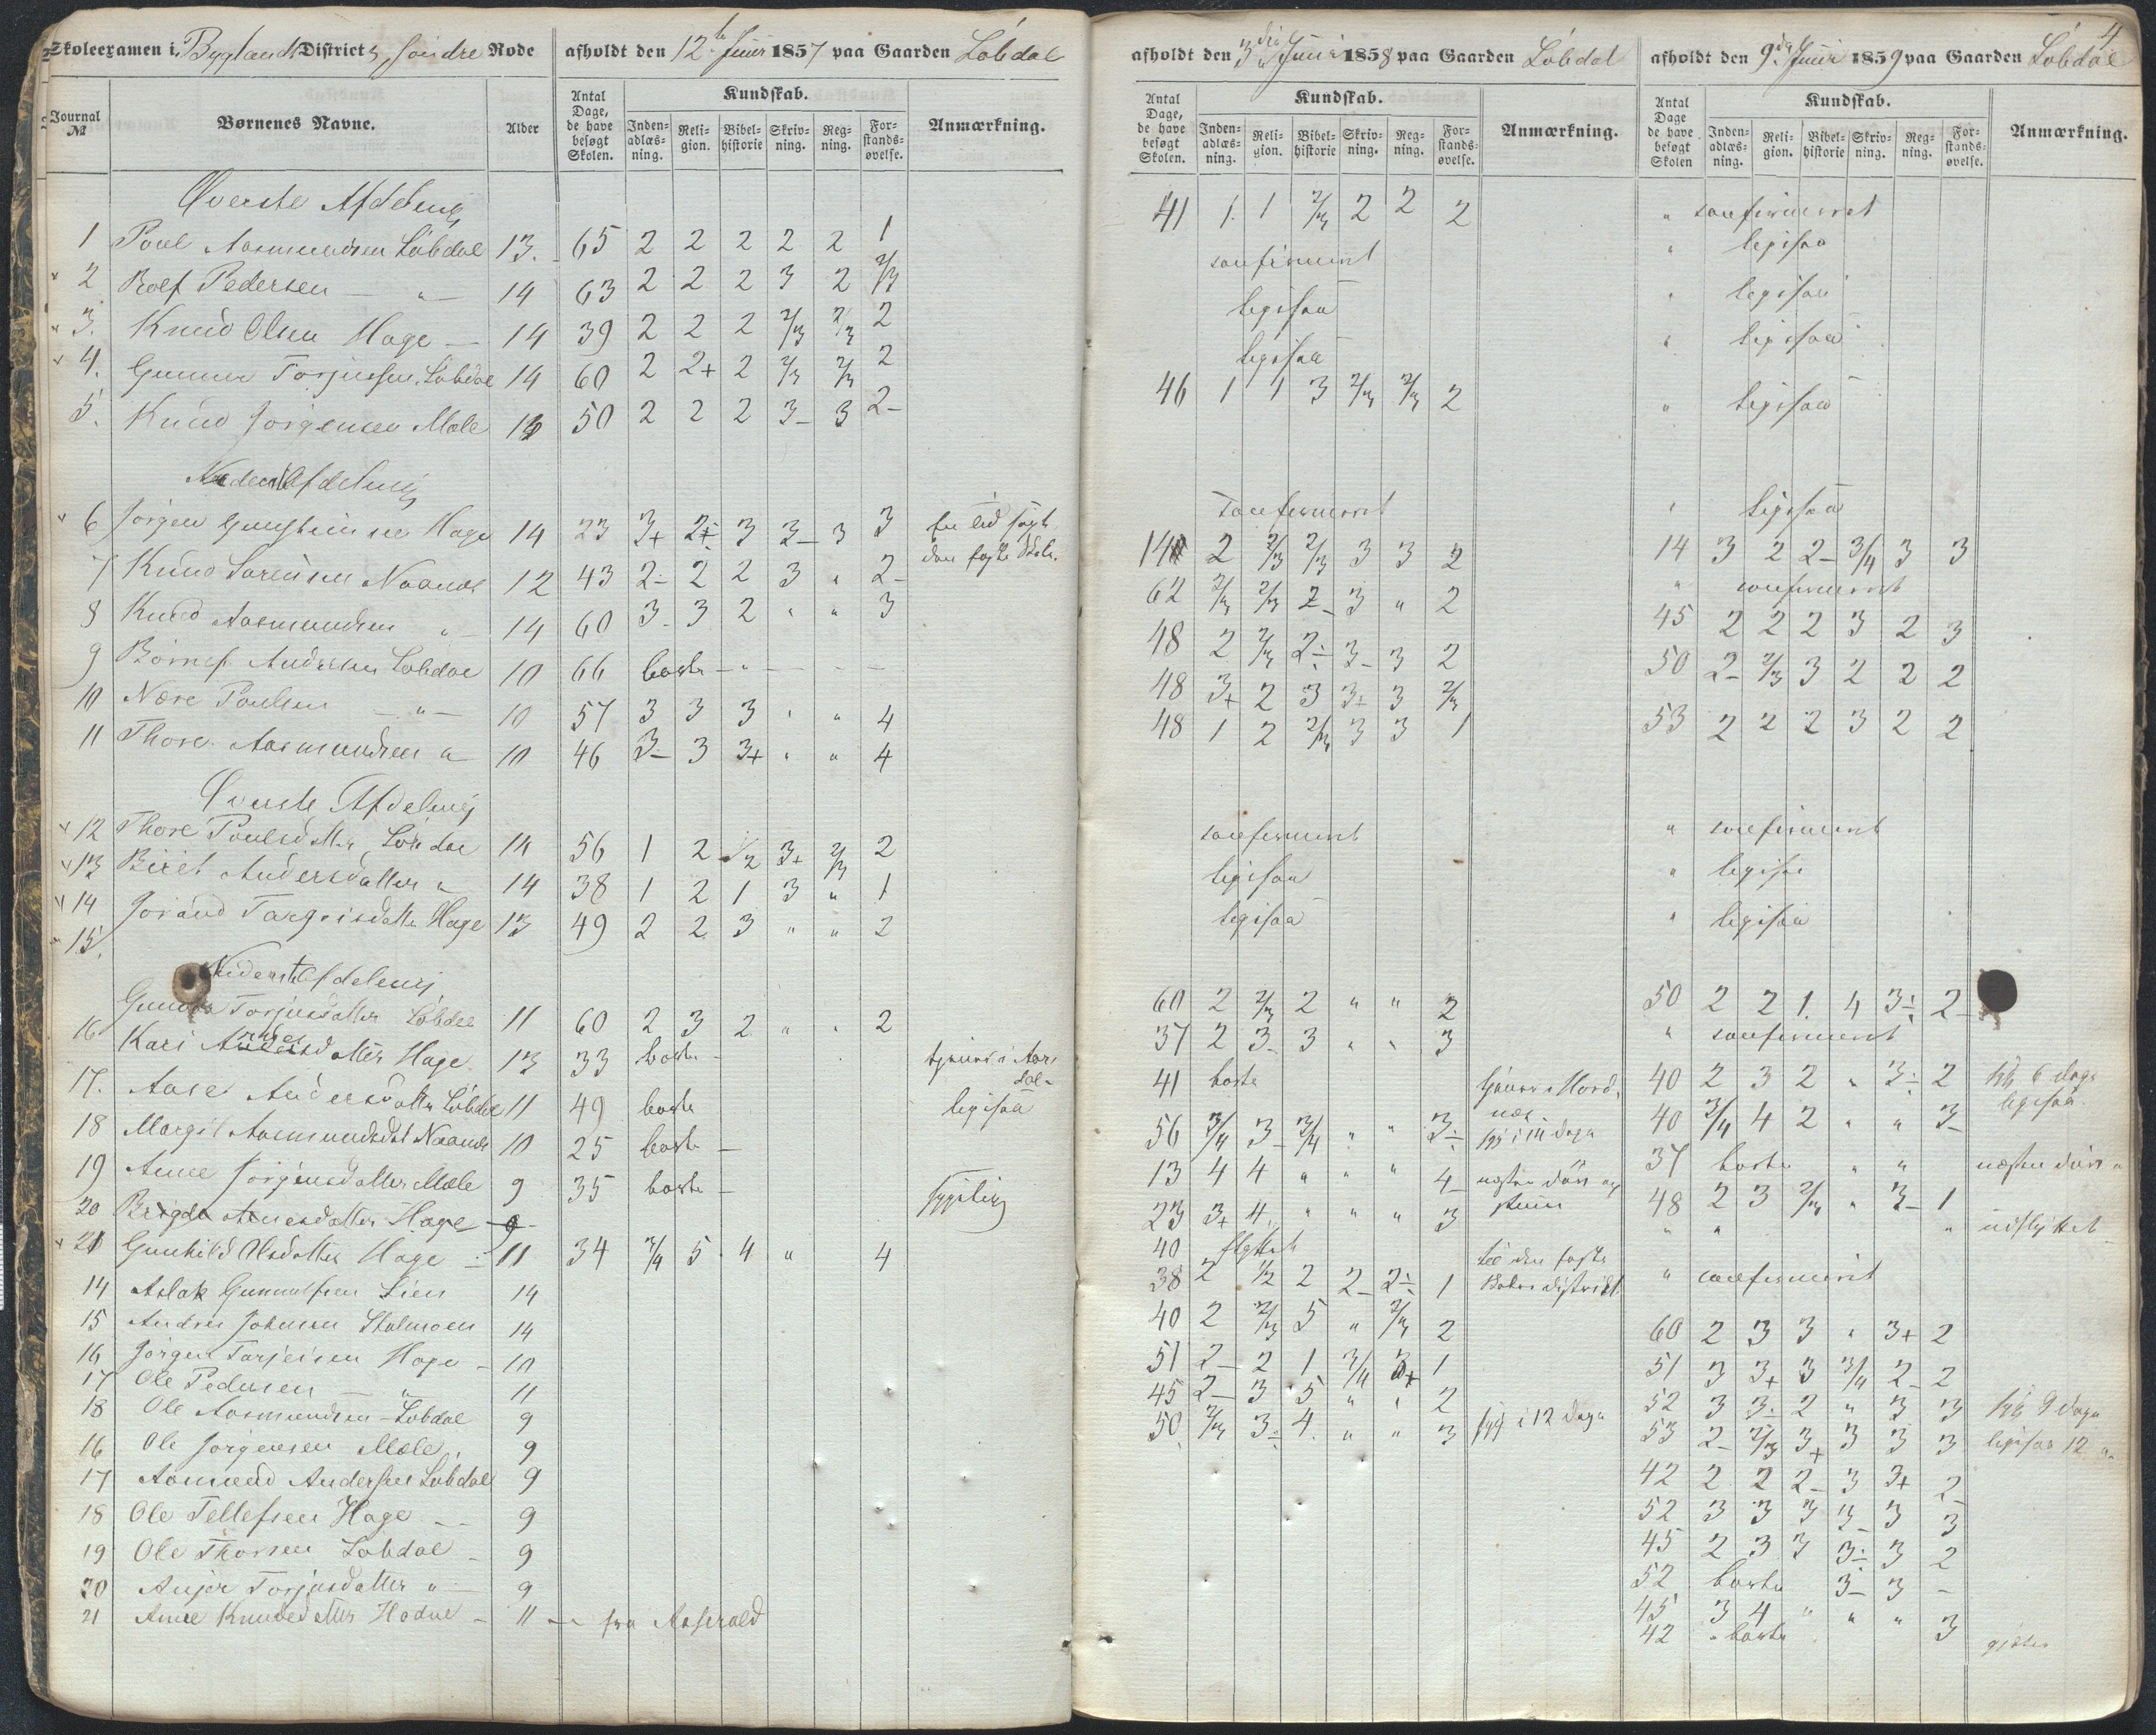 Skoleexamen i Bygland District s, søndre Rode
afholdt den 12te Juni 1857 paa Gaarden Løbdal
Journal №
Børnenes Navne.
Alder
Antal Dage, de have besøgt Skolen.
Kundskab.
Inden-adlæs-ning. Reli-gion. Bibel-historie Skriv-ning. Reg-ning. For-stands-øvelse.
Anmærkning.
Øverste Afdeling
1 Poul Aasmundsen Løbdal 13. 65 2 2 2 2 2 1
2 Rolf Pedersen — " — 14 63 2 2 2 3 2 2/3
3. Knud Olsen Hage — 14 39 2 2 2 2/3 2/3 2
4. Gunner Torjussen Løbdal 14 60 2 2+ 2 2/3 2/3 2
5. Knud Jørgensen Mæle 13 50 2 2 2 3- 3 2-
Nederste Afdeling
6 Jørgen Hage 14 23 3+ 2 3 3- 3 3
7 Knud Naanes 12 43 2- 2 2 3 " 2-
8 Knud Aasmundsen " 14 60 3- 3 2 " " 3
9 Andersen Løbdal 10 66 borte - " - - -
10 Nære Poulsen — " — 10 57 3 3 3 " " 4
11 Thore Aasmundsen " 10 46 3- 3 3+ " " 4
Øverste Afdeling
12 Thore Poulsdatter Løbdal 14 56 1 2 1/2 3+ 2/3 2
13 Biret Andersdatter " 14 38 1 2 1 3 " 1
14 Jorand Targeisdatter Hage 13 49 2 2 3 " " 2
15.
Nederste Afdeling
Torjusdatter Løbdal 11 60 2 3 2 " " 2
16 Kari Andersdatter Hage 13 33 borte -
17. Aase Andersdatter Løbdal 11 49 borte ligesaa
18 Margit Aasmundsdat Naanes 10 25 borte -
19 Anne Jørgensdatter Mæle 9 35 borte - sygelig
20 Hage 9
21 Gunhild Olsdatter Hage - 11 34 3/4 5 4 " 4
14 Aslak Gunnulfsen Lien 14
15 Anders Johnsen Stalmoen 14
16 Jørgen Tarjeisen Hage - 10
17 Ole Pedersen — " 11
18 Ole Aasmundsen - Løbdal 9
16 Ole Jørgensen Mæle. 9
17 Aamund Andersen Løbdal 9
18 Ole Tellefsen Hage - - 9
19 Ole Thorsen Løbdal - 9
20 Torjusdatter " - 9
21 Anne Knudsdatter - 11 - fra Aaserald
afholdt den 3die Juni 1858 paa Gaarden Løbdal
Antal Dage, de have besøgt Skolen.
Kundskab.
Inden-adlæs-ning. Reli-gion. Bibel-historie Skriv-ning. Reg-ning. For-stands-øvelse.
Anmærkning.
41 1. 1 2/3 2 2 2
confirmeret
ligesaa
ligesaa
46 1 1 3 2/3 2/3 2
confirmeret
14 2 2/3 2/3 3 3 2
62 2/3 2/3 2- 3 " 2
48 2 2/3 2÷ 3- 3 2
48 3+ 2 3 3+ 3 2/3
48 1 2 2/3 3 3 1
confirmeret
ligesaa
ligesaa
60 2 2/3 2 " " 2
37 2 3- 3 " " 3
41 borte
56 3/4 3- 3/4 " " 3÷
13 4 4 " " " 4-
23 3+ 4. " " " 3
40 flyttet til den faste Skoledistrikt
38 2 1/2 2 2- 2÷ 1
40 2 2/3 5 " 2/3 2
51 2- 2 1 3/4 3+ 1
45 2- 3 5 " " 2
50 2/3 3÷ 4. " " 3 syg i 12 dage
4
afholdt den 9de Juni 1859 paa Gaarden Løbdal
Antal Dage de have besøgt Skolen
Kundskab.
Inden-adlæs-ning. Reli-gion. Bibel-historie Skriv-ning. Reg-ning. For-stands-øvelse.
Anmærkning.
" confirmeret
" ligesaa
" ligesaa
" ligesaa
" ligesaa
" ligesaa
14 3 2 2- 3/4 3 3
" confirmeret
45 2 2 2 3 2 3
50 2- 2/3 3 2 2 2
53 2 2 2 3 2 2
" confirmeret
" ligesaa
" ligesaa
50 2 2 1. 4 3÷ 2-
" confirmeret
40 2 3 2 " 3÷ 2 syg 6 dage
40 3/4 4 2 " " 3- ligesaa
37 borte " "
48 2 3 2/3 " 3- 1
" " " udflyttet
" confirmeret
60 2 3 3 " 3+ 2
51 3 3+ 3 3/4 2- 2
52 3 3- 2 " 3 3 syg 9 dage
53 2- 2/3 3+ 3 3 3 ligesaa 12 "
42 2 2 2- 3 3+ 2-
52 3 3 3 3- 3 3
45 2 3 3 3÷ 3 2
52 borte 3- 3 -
45 3 4 " " " 3
42 " borte